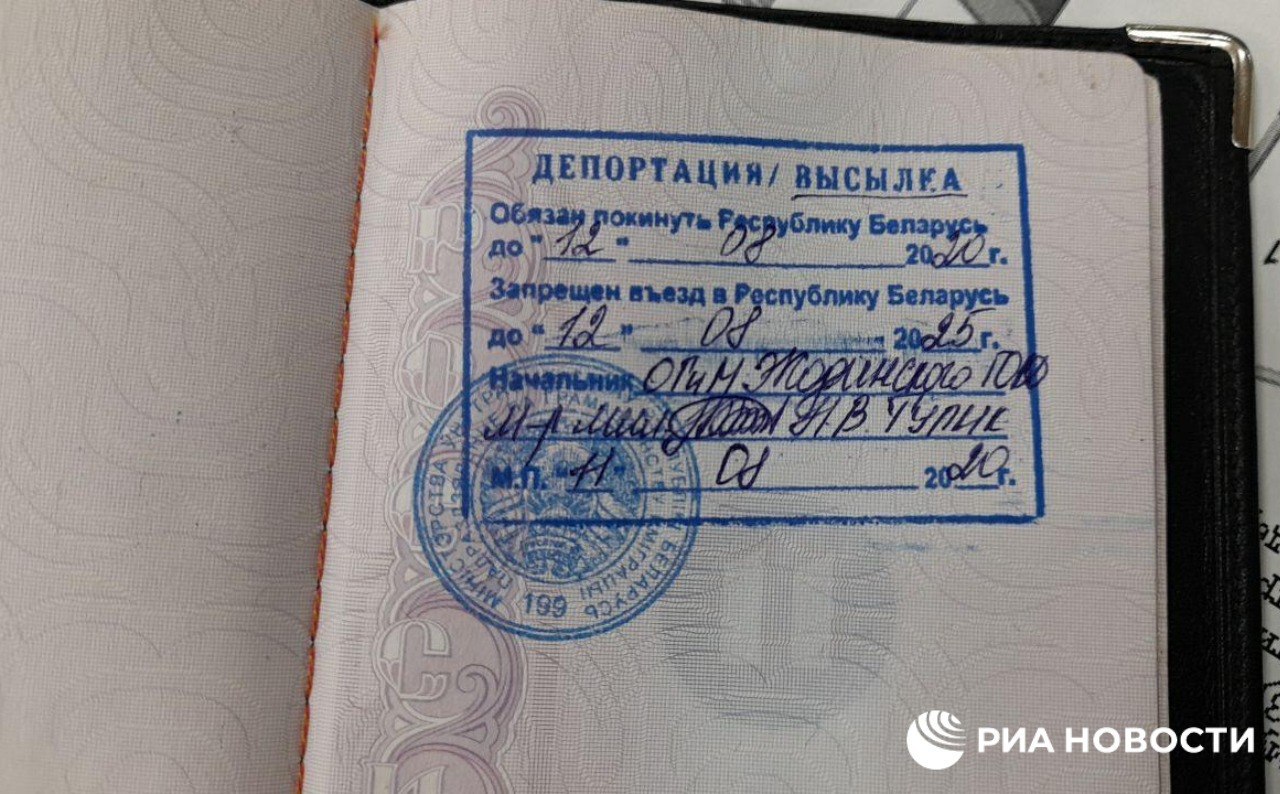 ДЕПОРТАЦИЯ/ ВЫСЫЛКА
Обязан покинуть Республику Беларусь
до "12" 08 2020г.
Запрещен въезд в Республику Беларусь
до "12" 08 2025г.
Начальник ОГиМ Жодинского ГОВД
М-р мил Н.В. Тупик
М.П. "11" 08 2020г.
БЕЛАРУСЬ
199
РИА НОВОСТИ